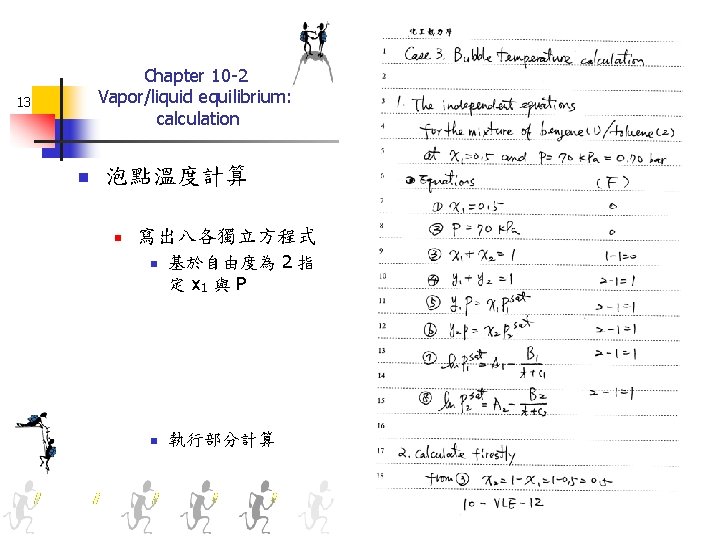 Chapter 10-2
Vapor/liquid equilibrium:
calculation
13
泡點溫度計算
寫出八各獨立方程式
基於自由度為 2 指
定 x1 與 P
執行部分計算
化工熱力學
1 Case 3. Bubble temperature calculation
2
3 1. The independent equations
4 for the mixture of benzene(1)/toluene(2)
5 at x1=0.5 and P=70 kPa = 0.70 bar
6 Equations (F)
7 ① x1=0.5 0
8 ② P=70 kPa 0
9 ③ x1+x2=1 1-1=0
10 ④ y1+y2=1 2-1=1
11 ⑤ y1P=x1P1sat 2-1=1
12 ⑥ y2P=x2P2sat 2-1=1
13 ⑦ ln P1sat=A1-B1/(t+C1) 2-1=1
14
15 ⑧ ln P2sat=A2-B2/(t+C2) 2-1=1
16
17 2. Calculate firestly
18 from ③ x2=1-x1=1-0.5=0.5
10-VLE-12